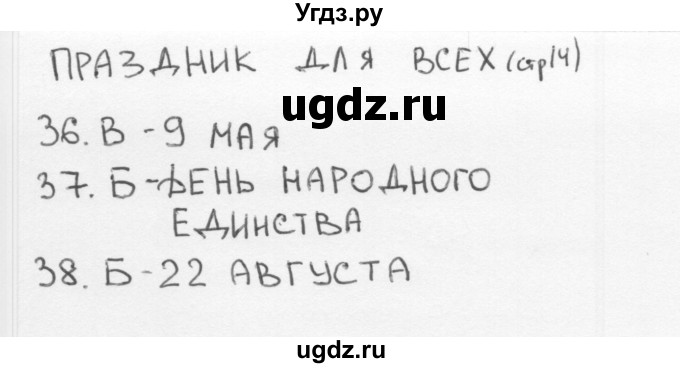 Угдз.ру
ПРАЗДНИК ДЛЯ ВСЕХ (стр14)
ugdz.ru
36. В - 9 МАЯ
37. Б - ДЕНЬ НАРОДНОГО
ЕДИНСТВА
38. Б - 22 АВГУСТА
ugdz.ru